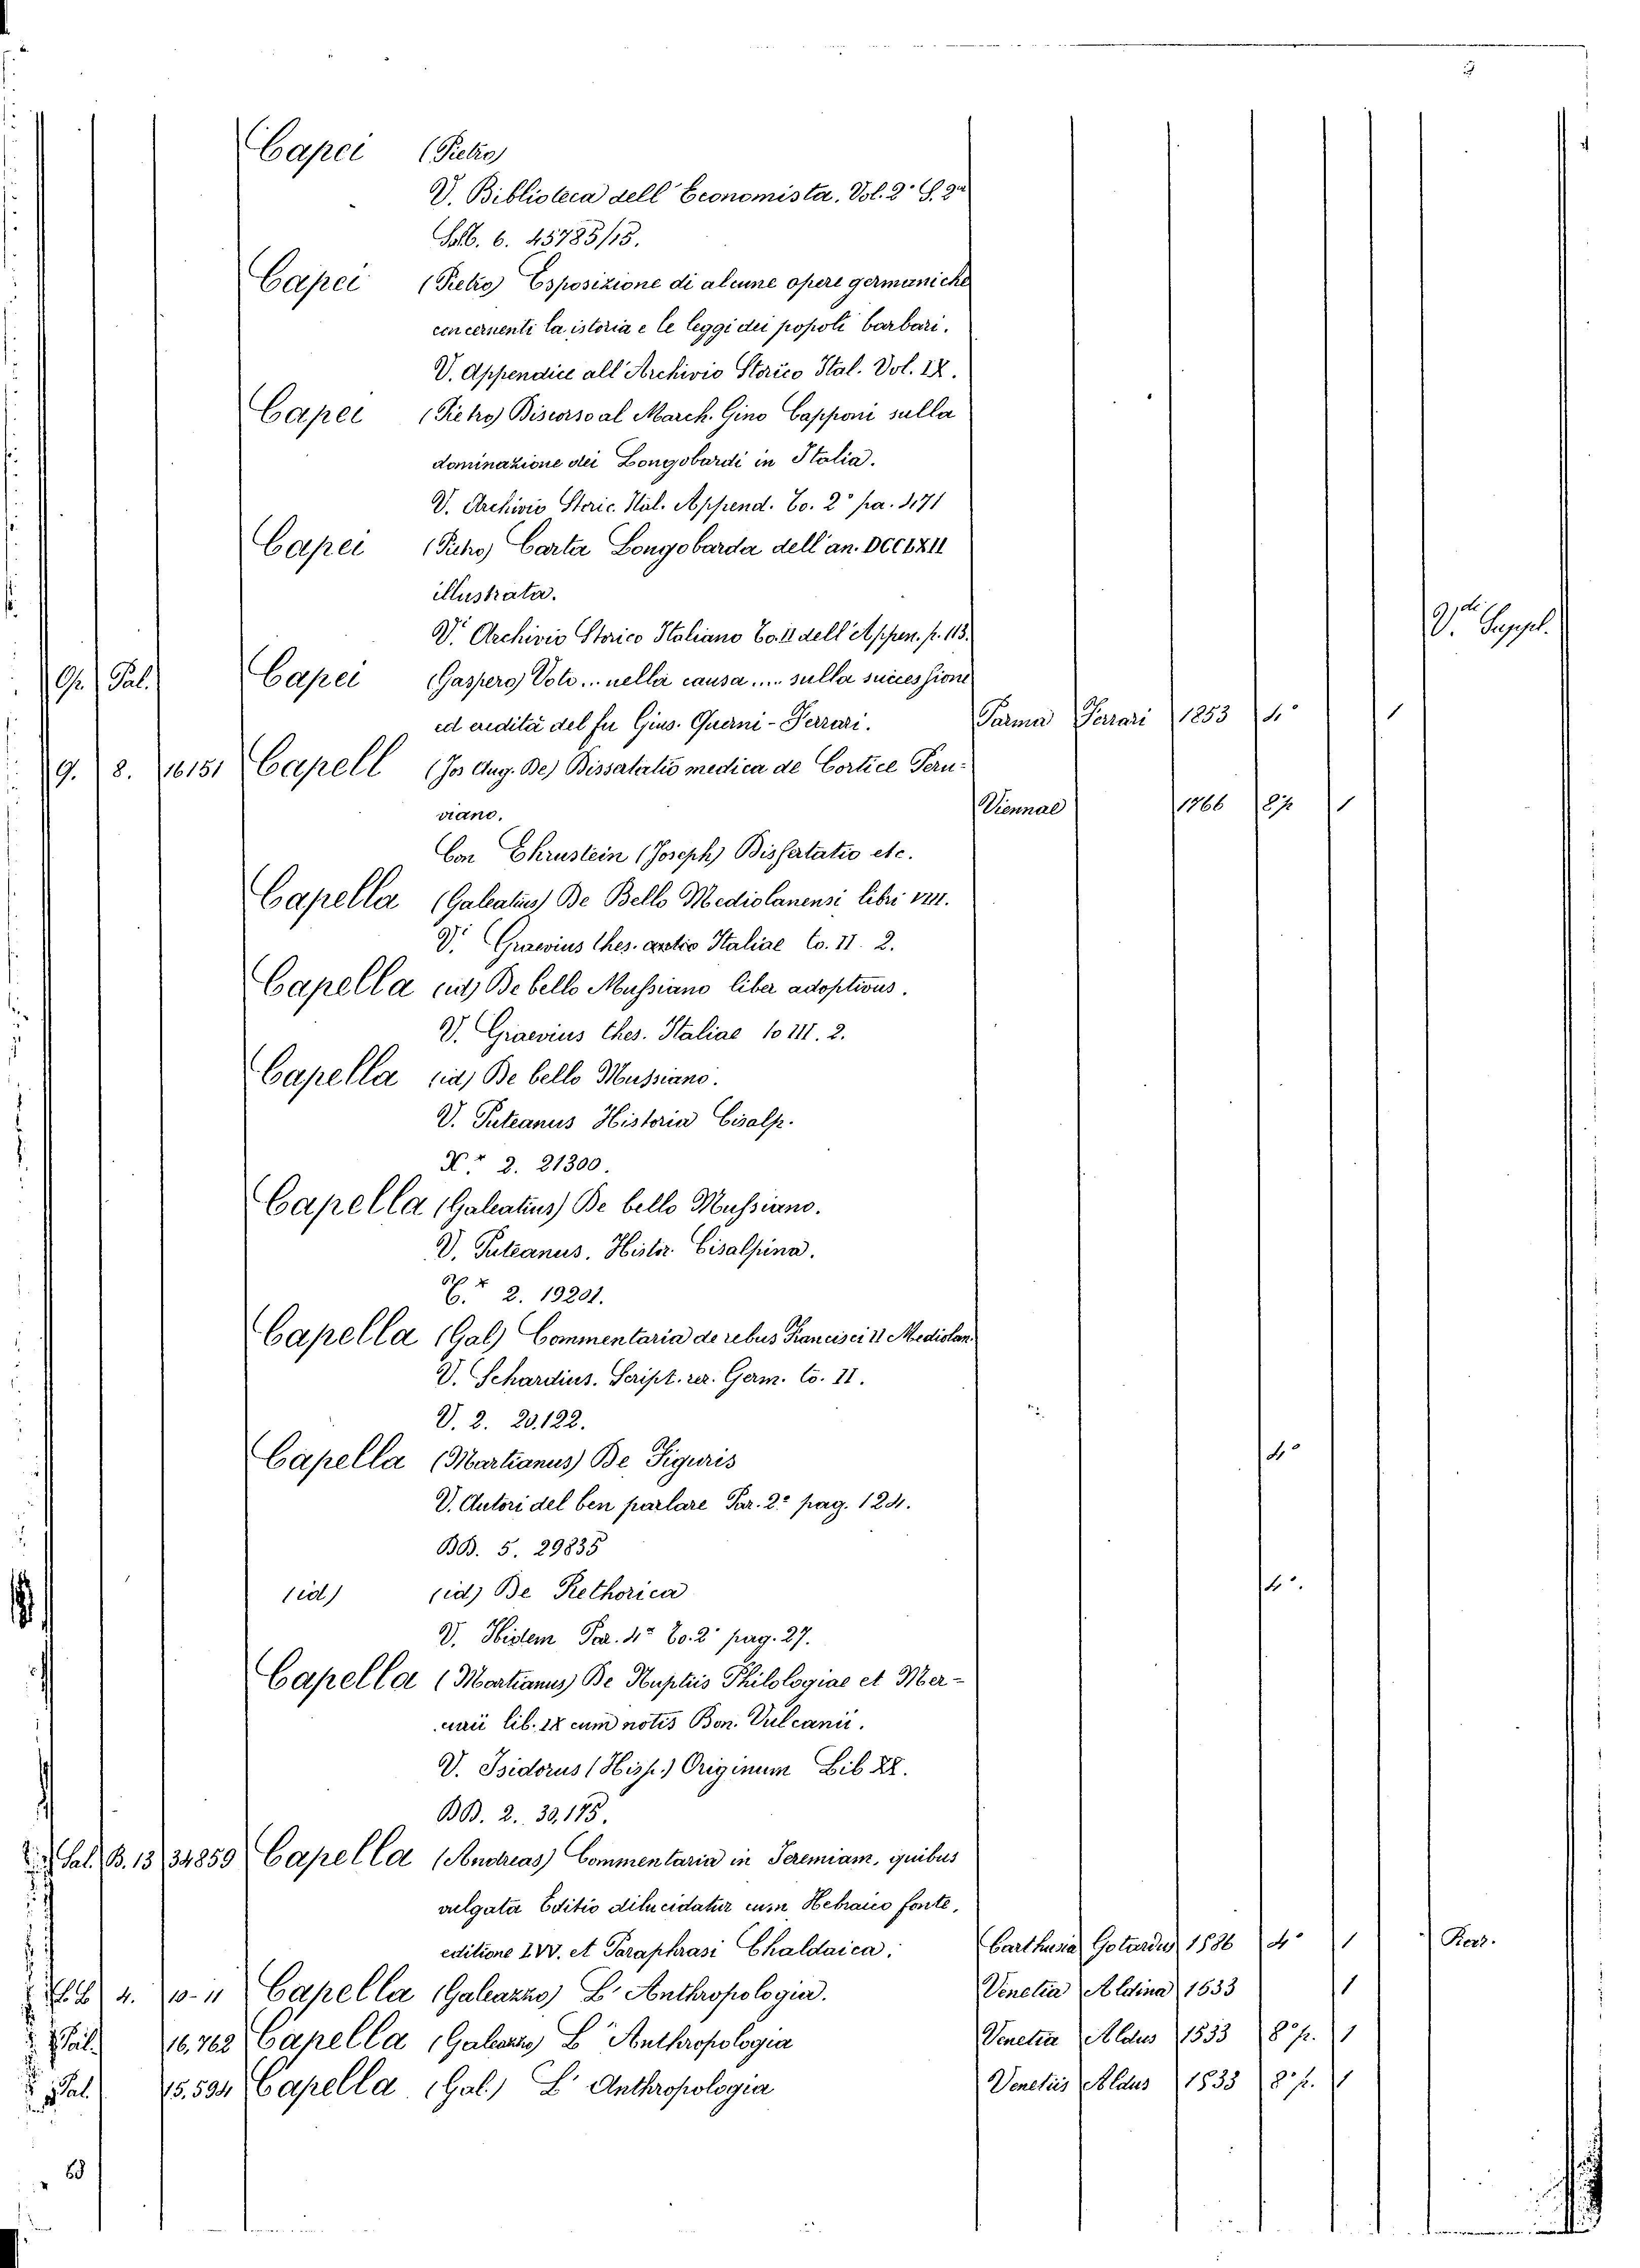 Capei (Pietro)
V. Biblioteca dell'Economista. Vol. 2° S. 2a
6. 45785/15.
Capei (Pietro) Esposizione di alcune opere germaniche
concernenti la istoria e le leggi dei popoli barbari.
V. Appendice all'Archivio Storico Ital. Vol. IX.
Capei (Pietro) Discorso al March. Gino Capponi sulla
dominazione dei Longobardi in Italia.
V. Archivio Storic. Ital. Append. To. 2° pa. 471
Capei (Pietro) Carta Longobarda dell'an.
illustrata.
V. Archivio Storico Italiano To. II dell'Appen. p. 113.
V. Suppl.
Pal. Capei (Gaspero) Voto... nella causa.... sulla successione
ed eredità del fu Gius. Guerni-Ferrari. Parma Ferrari 1853 4° 1
9. 8. 16151 Capell (Jos Aug. De) Dissertatio medica de Cortice Peru-
viano. Viennae 1766 8° p. 1
Con Ehrustein (Joseph) Dissertatio etc.
Capella (Galeatius) De Bello Mediolanensi libri VIII.
V. Graevius thes. antiq Italiae to. II. 2.
Capella (id) De bello Mussiano liber adoptivus.
V. Graevius thes. Italiae to III. 2.
Capella (id) De bello Mussiano.
V. Puteanus Historia Cisalp.
2. 21300.
Capella (Galeatius) De bello Mussiano.
V. Puteanus. Histor. Cisalpina.
2. 19201.
Capella (Gal) Commentaria de rebus Francisci II Mediolan.
V. Schardius. Script. rer. Germ. to. II.
V. 2. 20.122.
Capella (Martianus) De Figuris 4°
V. Autori del ben parlare Par. 2° pag. 124.
BB. 5. 29835
(id) (id) De Rethorica 4°.
V. Ibidem Par. 4a To. 2° pag. 27.
Capella (Martianus) De Nuptiis Philologiae et Mer-
curii lib. IX cum notis Bon. Vulcanii.
V. Isidorus (Hisp.) Originum Lib XX.
BB. 2. 30,175.
Sal. B. 13 34859 Capella (Andreas) Commentaria in Jeremiam, quibus
vulgata Editio dilucidatur cum Hebraico fonte,
editione LXX. et Paraphrasi Chaldaica. Carthusia Gotardus 1586 4° 1 Rar.
4. 10-11 Capella (Galeazzo) L'Anthropologia. Venetia Aldina 1533 1
Pal. 16,762 Capella (Galeazzo) L'Anthropologia Venetia Aldus 1533 8° p. 1
Pal. 15.594 Capella (Gal.) L'Anthropologia Venetiis Aldus 1533 8° p. 1